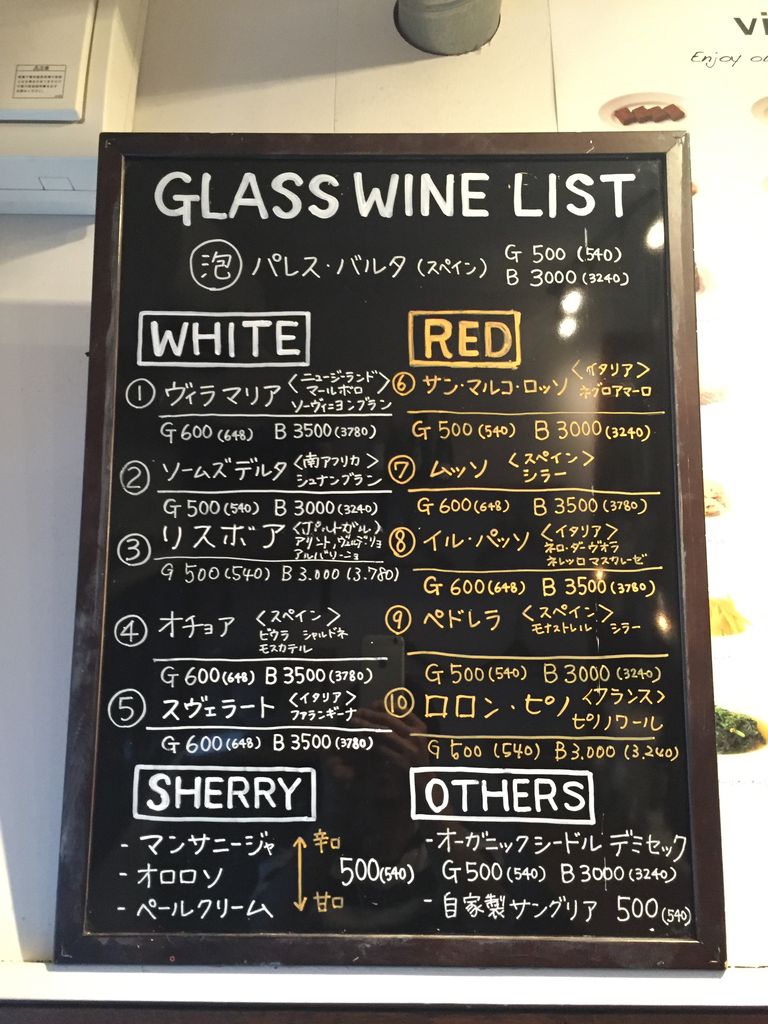 Vi
Enjoy
GLASS WINE LIST
泡 パレス・バルタ (スペイン) G 500 (540)
B 3000 (3240)
WHITE
① ヴィラマリア <ニュージーランド>
マールボロ
ソーヴィニヨンブラン
G 600 (648) B 3500 (3780)
② ソームズデルタ <南アフリカ>
シュナンブラン
G 500 (540) B 3000 (3240)
③ リスボア <ポルトガル>
アリント,ヴェルデリョ
アルバリーニョ
G 500 (540) B 3.000 (3.780)
④ オチョア <スペイン>
ビウラ シャルドネ
モスカテル
G 600 (648) B 3500 (3780)
⑤ スヴェラート <イタリア>
ファランギーナ
G 600 (648) B 3500 (3780)
RED
⑥ サン・マルコ・ロッソ <イタリア>
ネグロアマーロ
G 500 (540) B 3000 (3240)
⑦ ムッソ <スペイン>
シラー
G 600 (648) B 3500 (3780)
⑧ イル・パッソ <イタリア>
ネロ・ダーヴォラ
ネレッロ マスカレーゼ
G 600 (648) B 3500 (3780)
⑨ ペドレラ <スペイン>
モナストレル シラー
G 500 (540) B 3000 (3240)
⑩ ロロン・ピノ <フランス>
ピノノワール
G 500 (540) B 3.000 (3.240)
SHERRY
- マンサニージャ 辛口
- オロロソ 500 (540)
- ペールクリーム 甘口
OTHERS
- オーガニックシードル デミセック
G 500 (540) B 3000 (3240)
- 自家製サングリア 500 (540)